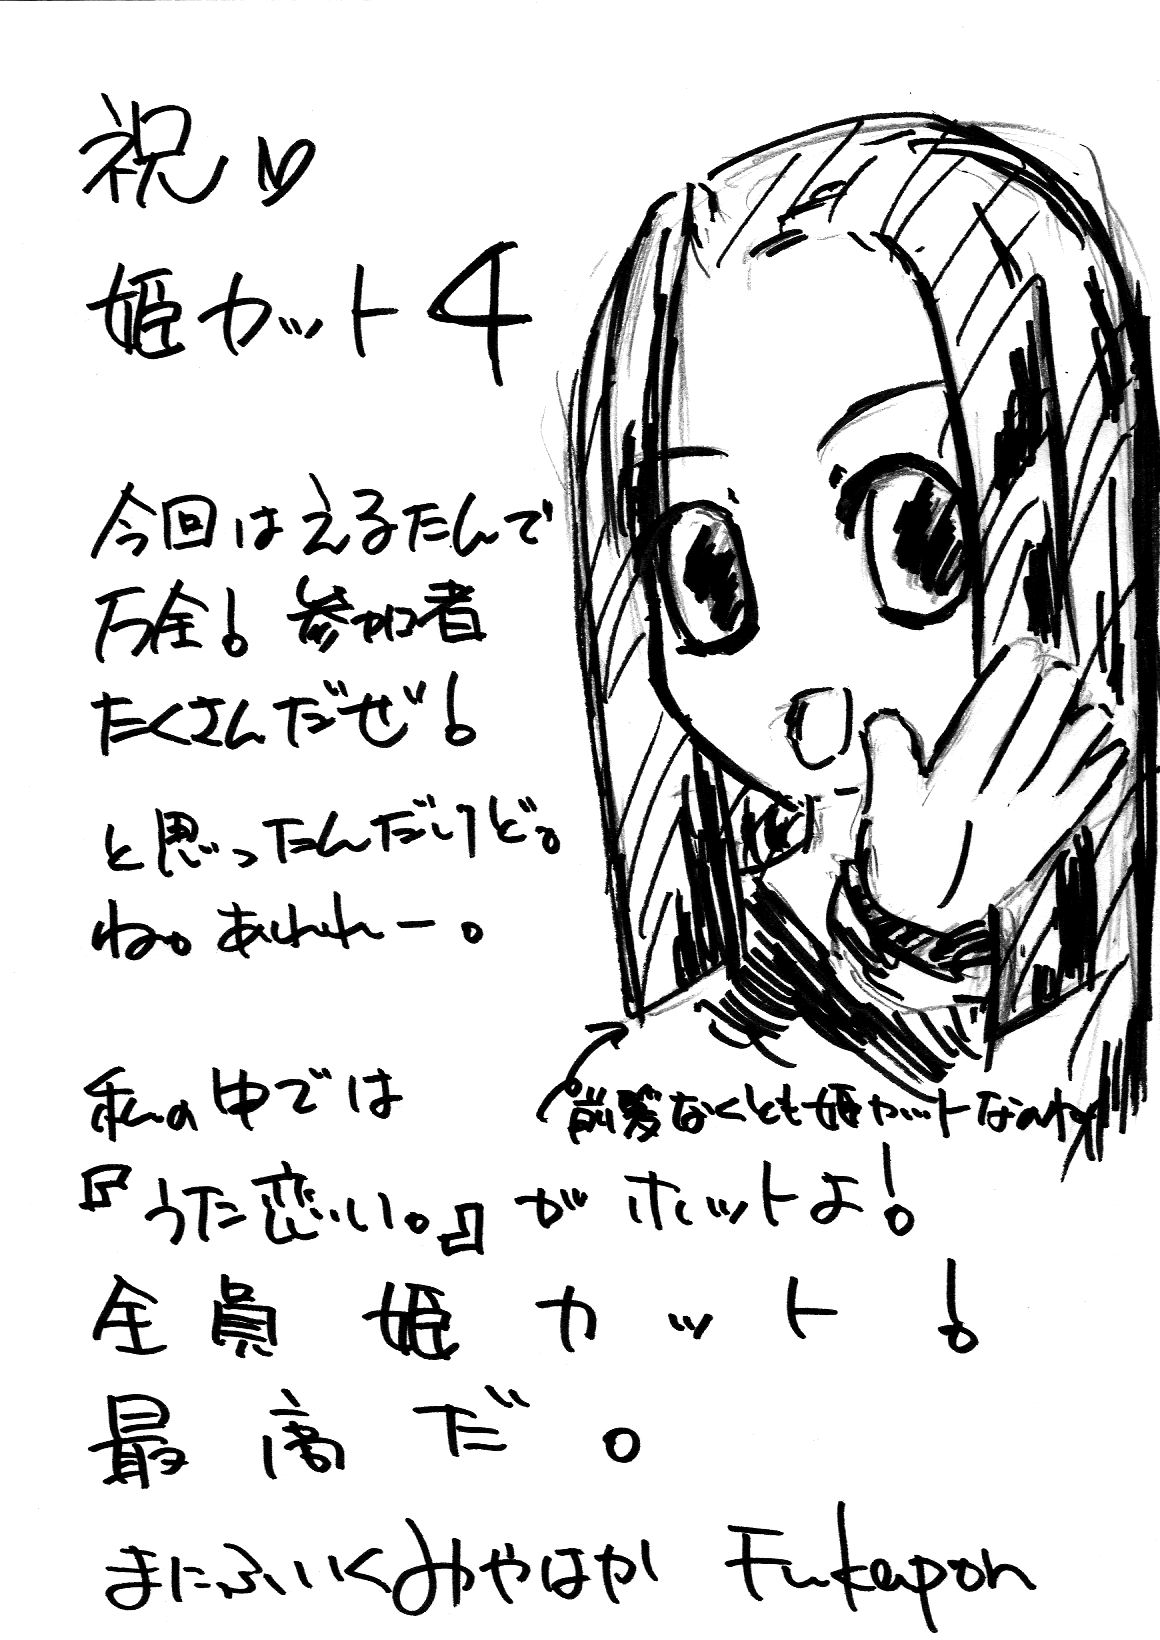 祝♡
姫カット4
今回はえるたんで
万全！参加者
たくさんだぜ！
と思ったんだけど。
ね。あれれー。
前髪なくとも姫カットなのね
私の中では
『うた恋い。』がホットよ！
全員姫カット！
最高だ。
まにふいくみやはか Fukapon